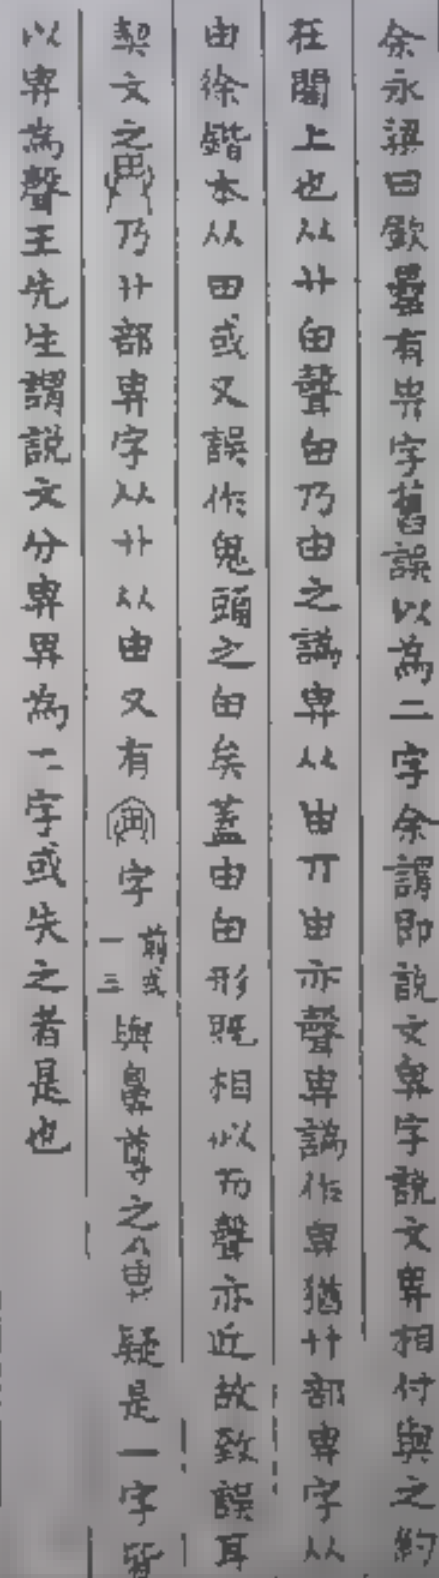 余永梁曰歔罍有畀字舊誤以為二字余謂即說文畀字說文畀相付與之約
在閣上也从廾甶聲甶乃由之譌畀从甾丌甾亦聲畀譌作畀猶廾部畀字从
由徐鍇本从田或又誤作鬼頭之甶矣蓋由甶形既相似而聲亦近故致誤耳
契文之乃廾部畀字从廾从由又有字前或一三與尊之疑是一字皆
以畀為聲王先生謂說文分畀畁為二字或失之者是也